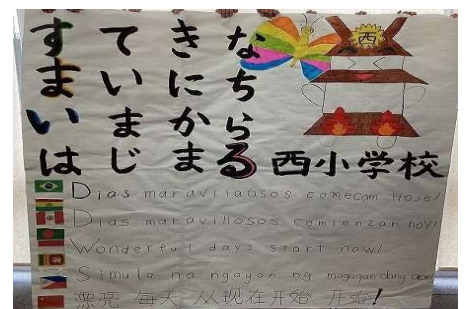 すてきな
西
まいにち
いまから
はじまる
西小学校
Dias maravilaosos comecam Hoje!
Dias maravillosos comienzan hoy!
Wonderful days start now!
Simula na ngayon ng magagandang
漂亮 每天 从现在开始 开始!